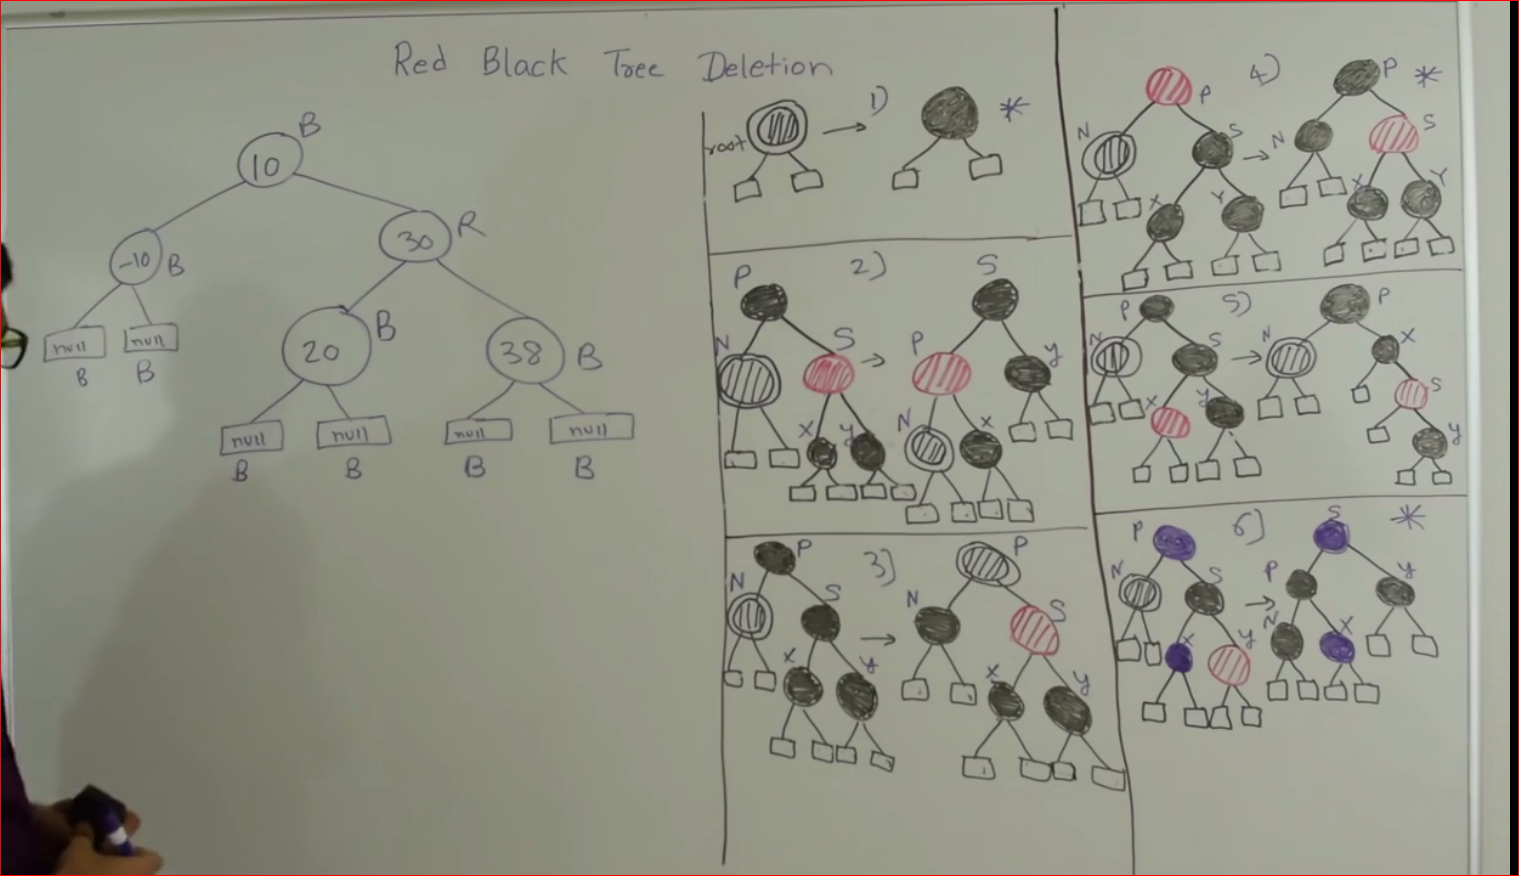 Red Black Tree Deletion
B
10
-10
B
30
R
null
null
B
B
20
B
38
B
null
null
null
null
B
B
B
B
1)
root
*
2)
P
N
S
X
y
S
P
y
N
X
3)
P
N
S
X
y
P
N
S
X
y
4)
P
N
S
X
Y
P
*
N
S
X
Y
5)
P
N
S
X
y
P
N
X
S
y
6)
P
N
S
X
y
S
*
P
y
N
X